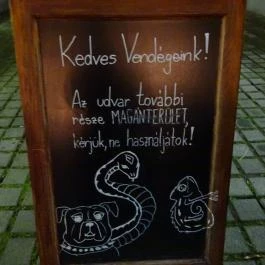 Kedves Vendégeink!
Az udvar további
része MAGÁNTERÜLET,
kérjük, ne használjátok!